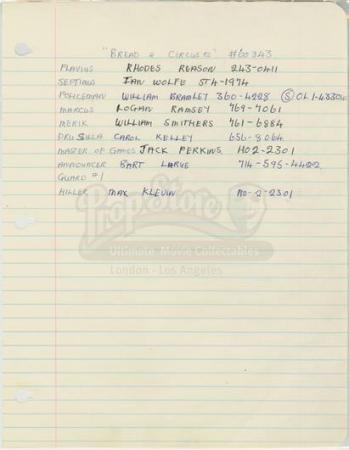 "BREAD & CIRCUSES" #60343
FLAVIUS RHODES REASON 243-0411
SEPTIMUS IAN WOLFE ST4-1974
POLICEMAN WILLIAM BRAMLEY 360-4288 (S) OL1-
MARCUS LOGAN RAMSEY 769-7061
MERIK WILLIAM SMITHERS 761-6884
DRUSILLA CAROL KELLEY 656-8064
MASTER OF GAMES JACK PERKINS HO2-2301
ANNOUNCER BART LARUE 714-595-4422
GUARD #1
HILLER MAX KLEVIN HO-2-2301
PropStore
Ultimate Movie Collectables
London - Los Angeles